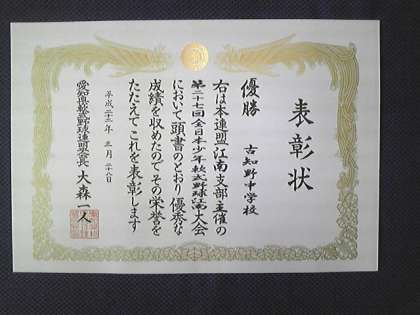 表彰状
優勝 古知野中学校
右は本連盟江南支部主催の
第二十七回全日本少年軟式野球江南大会
において頭書のとおり優秀な
成績を収めたのでその栄誉を
たたえてこれを表彰します
平成二十二年三月二十八日
愛知県軟式野球連盟会長 大森一人